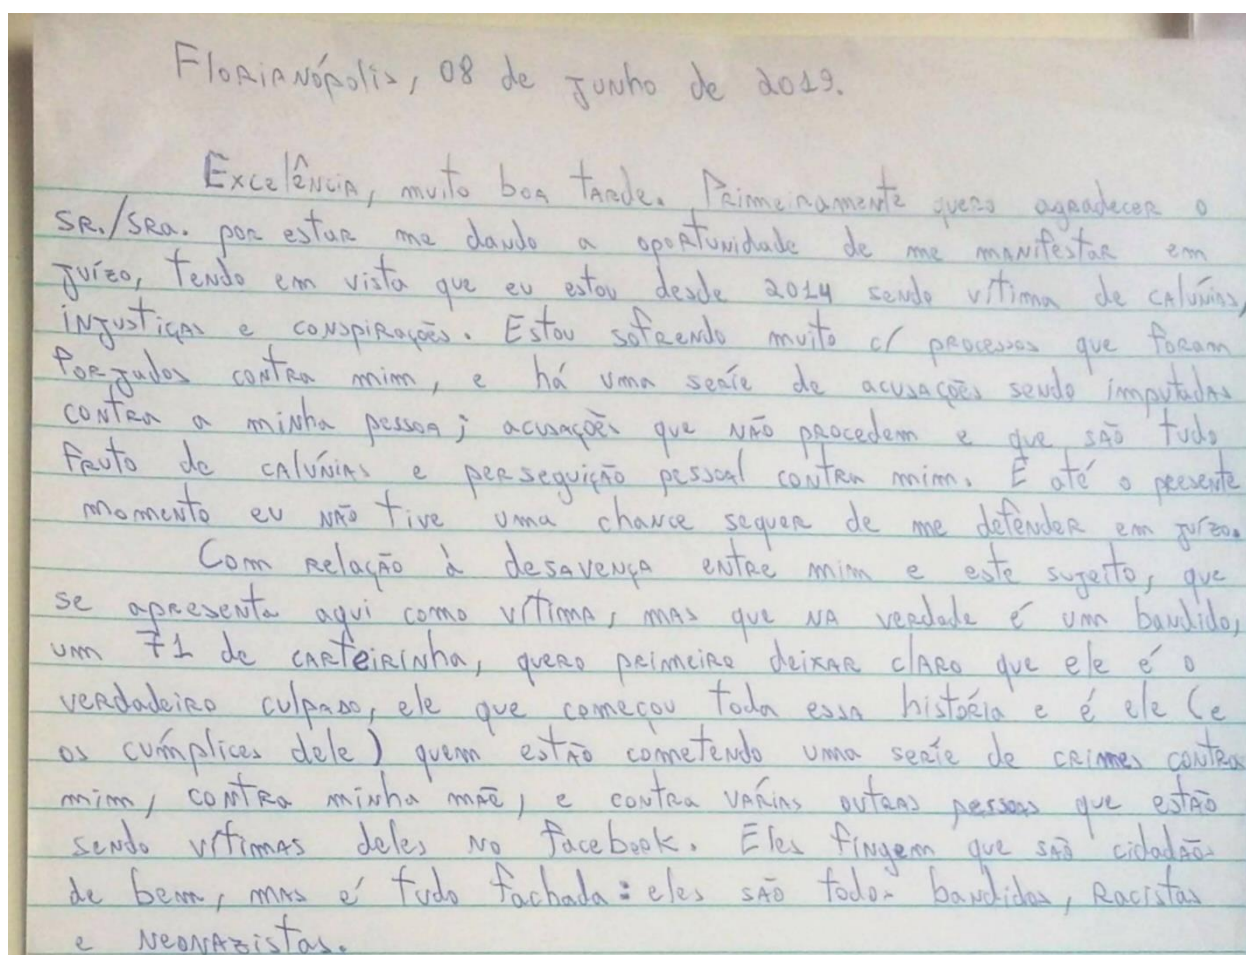 Florianópolis, 08 de junho de 2019.
Excelência, muito boa tarde. Primeiramente quero agradecer o
SR./SRA. por estar me dando a oportunidade de me manifestar em
juízo, tendo em vista que eu estou desde 2014 sendo vítima de calúnias,
injustiças e conspirações. Estou sofrendo muito c/ processos que foram
forjados contra mim, e há uma série de acusações sendo imputadas
contra a minha pessoa; acusações que não procedem e que são tudo
fruto de calúnias e perseguição pessoal contra mim. E até o presente
momento eu não tive uma chance sequer de me defender em juízo.
Com relação à desavença entre mim e este sujeito, que
se apresenta aqui como vítima, mas que na verdade é um bandido,
um 71 de carteirinha, quero primeiro deixar claro que ele é o
verdadeiro culpado, ele que começou toda essa história e é ele (e
os cúmplices dele) quem estão cometendo uma série de crimes contra
mim, contra minha mãe, e contra várias outras pessoas que estão
sendo vítimas deles no facebook. Eles fingem que são cidadãos
de bem, mas é tudo fachada: eles são todos bandidos, racistas
e neonazistas.